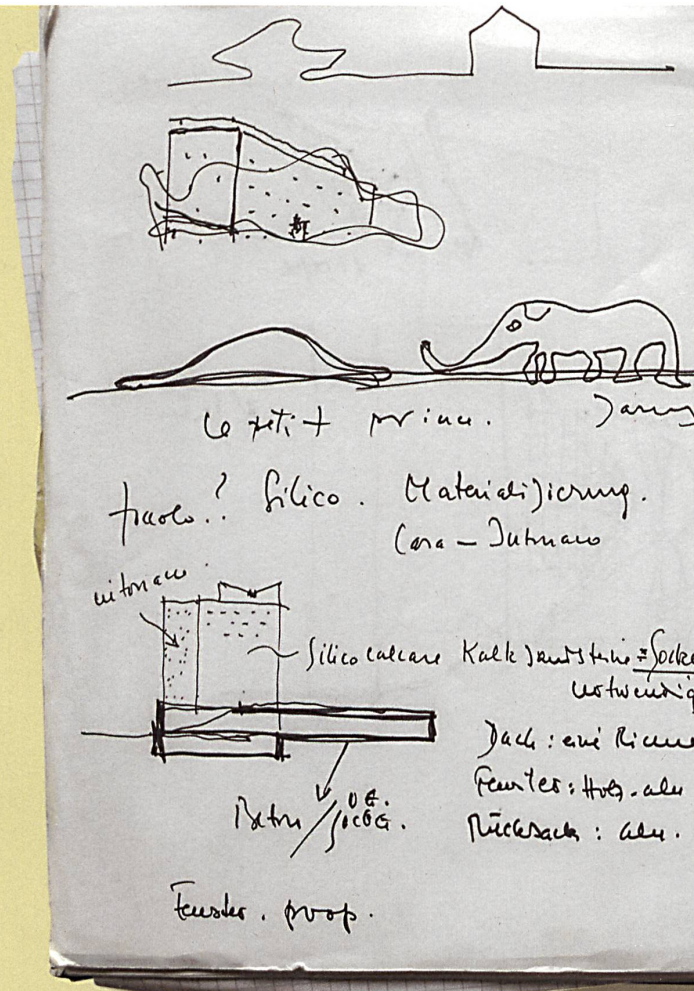 le petit prince.
? Silico. Materialisierung.
Casa – Intonaco
intonaco
Silicocalcare Kalksandsteine = Socke
notwendig
Dach: eine Rinne
Fenster: Holz-alu
Beton /
Rucksack: alu.
Fenster. prop.